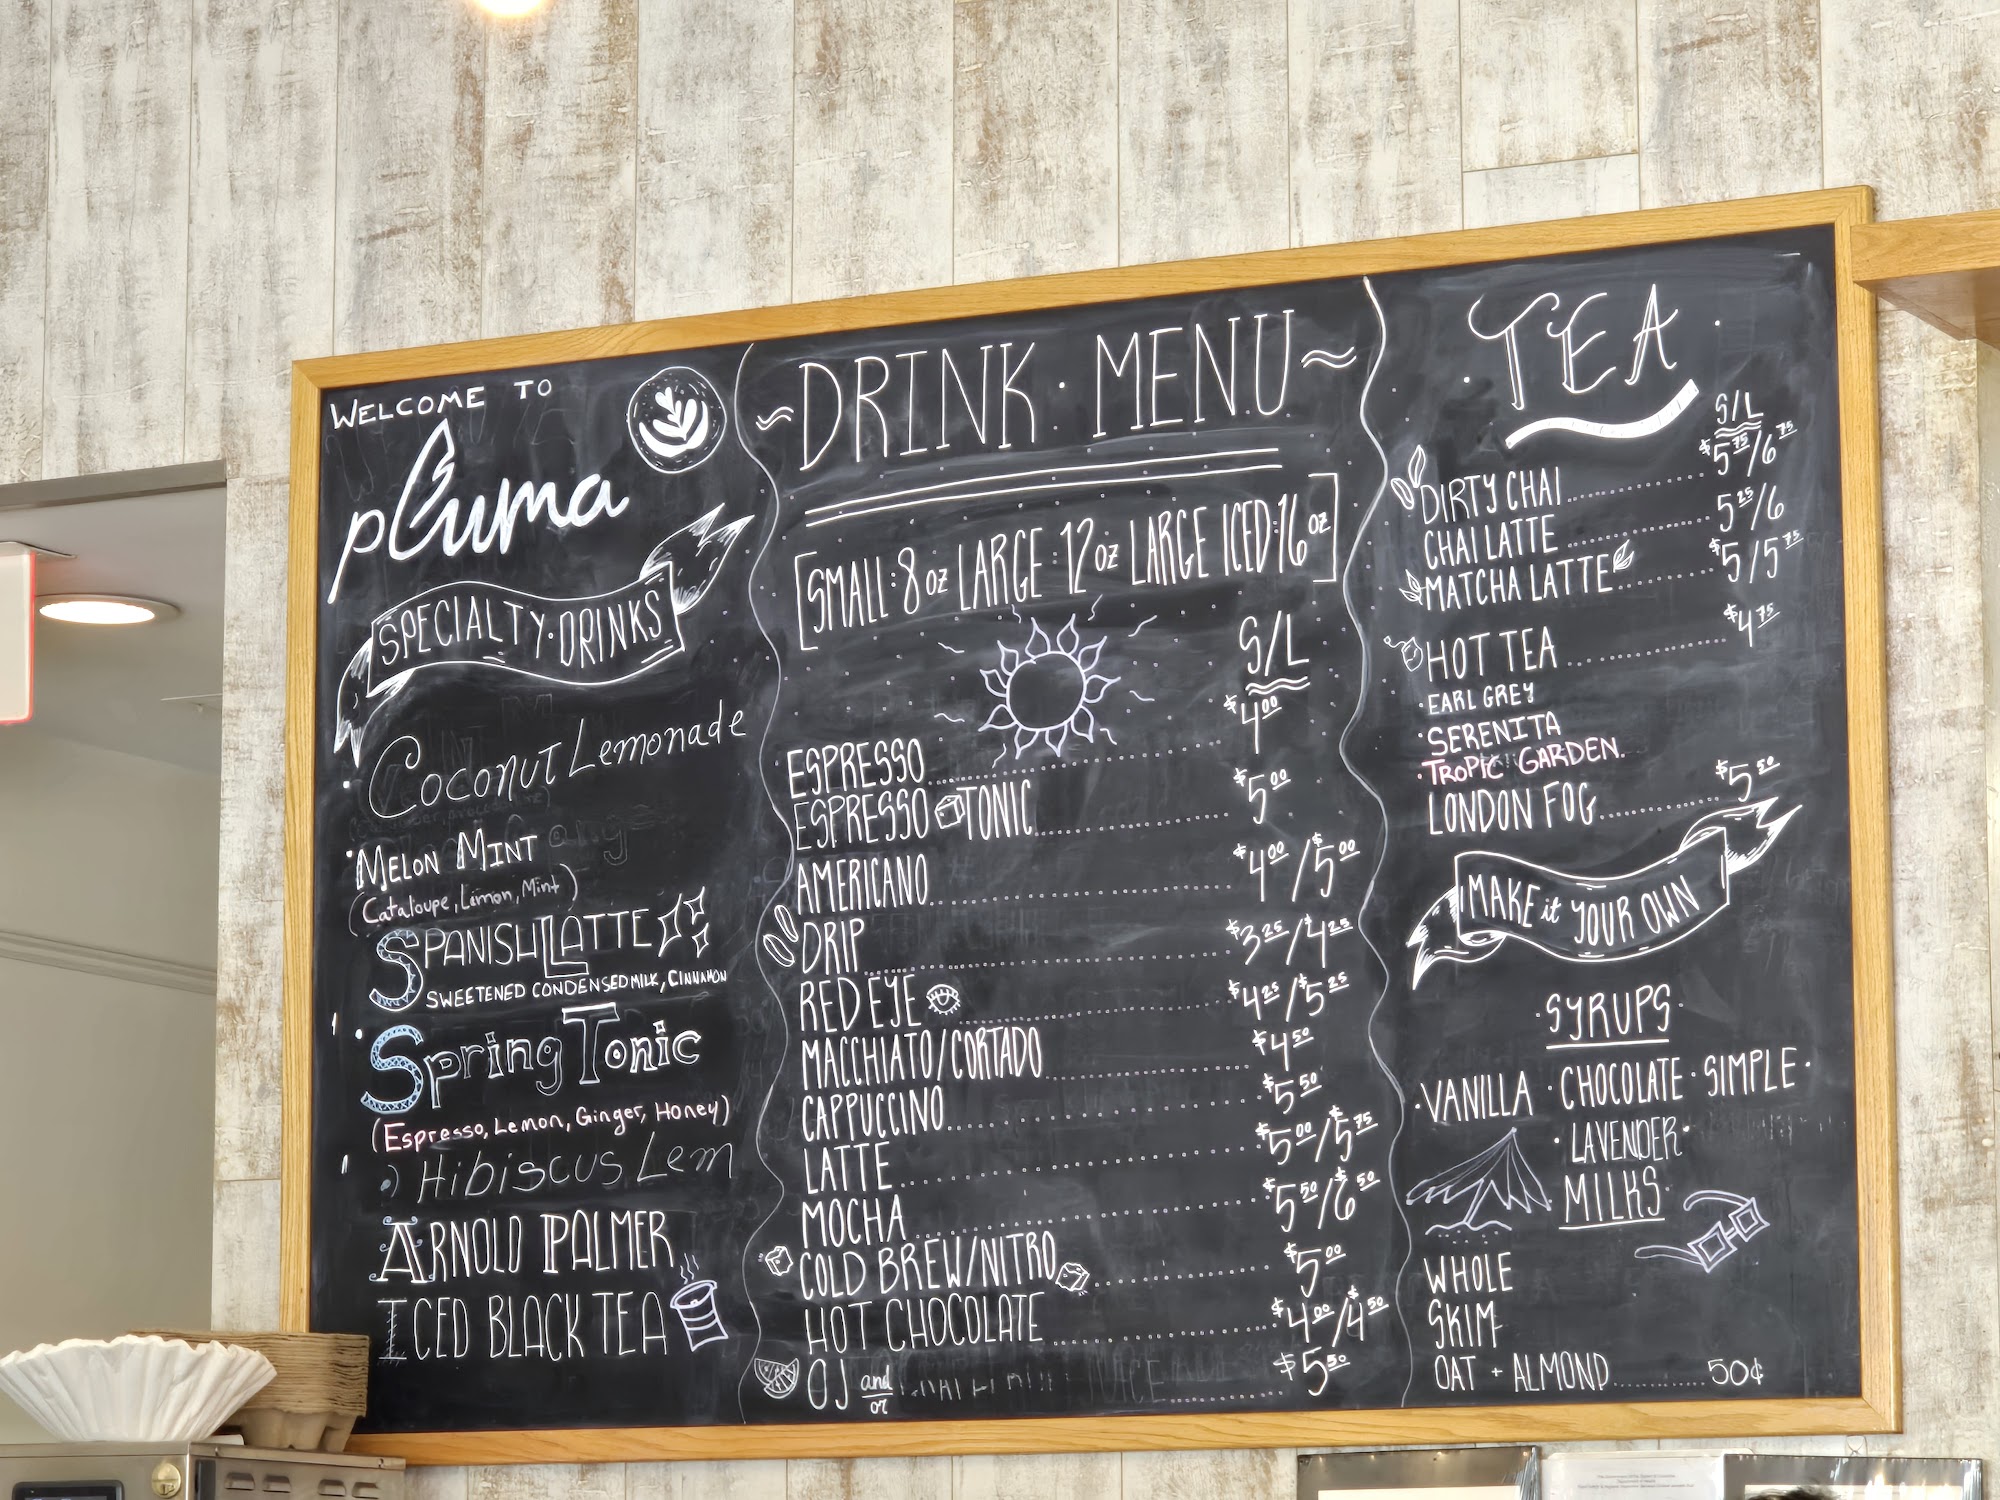 WELCOME TO
pluma
SPECIALTY·DRINKS
· Coconut Lemonade
· MELON MINT
(Cataloupe, Lemon, Mint)
SPANISH LATTE
SWEETENED CONDENSED MILK, CINNAMON
· Spring Tonic
(Espresso, Lemon, Ginger, Honey)
Hibiscus Lem
ARNOLD PALMER
ICED BLACK TEA
~DRINK·MENU~
[SMALL:8oz LARGE:12oz LARGE ICED:16oz]
S/L
ESPRESSO $4.00
ESPRESSO TONIC $5.00
AMERICANO $4.00/$5.00
DRIP $3.25/$4.25
RED EYE $4.25/$5.25
MACCHIATO/CORTADO $4.50
CAPPUCCINO $5.50
LATTE $5.00/$5.75
MOCHA $5.50/$6.50
COLD BREW/NITRO $5.00
HOT CHOCOLATE $4.00/$4.50
OJ and/or JUICE $5.50
TEA
S/L
DIRTY CHAI $5.75/6.75
CHAI LATTE 5.25/6
MATCHA LATTE $5/5.75
HOT TEA $4.75
·EARL GREY
·SERENITA
·TROPIC GARDEN.
LONDON FOG $5.50
MAKE it YOUR OWN
·SYRUPS·
·VANILLA · CHOCOLATE · SIMPLE ·
· LAVENDER ·
MILKS·
WHOLE
SKIM
OAT + ALMOND 50¢